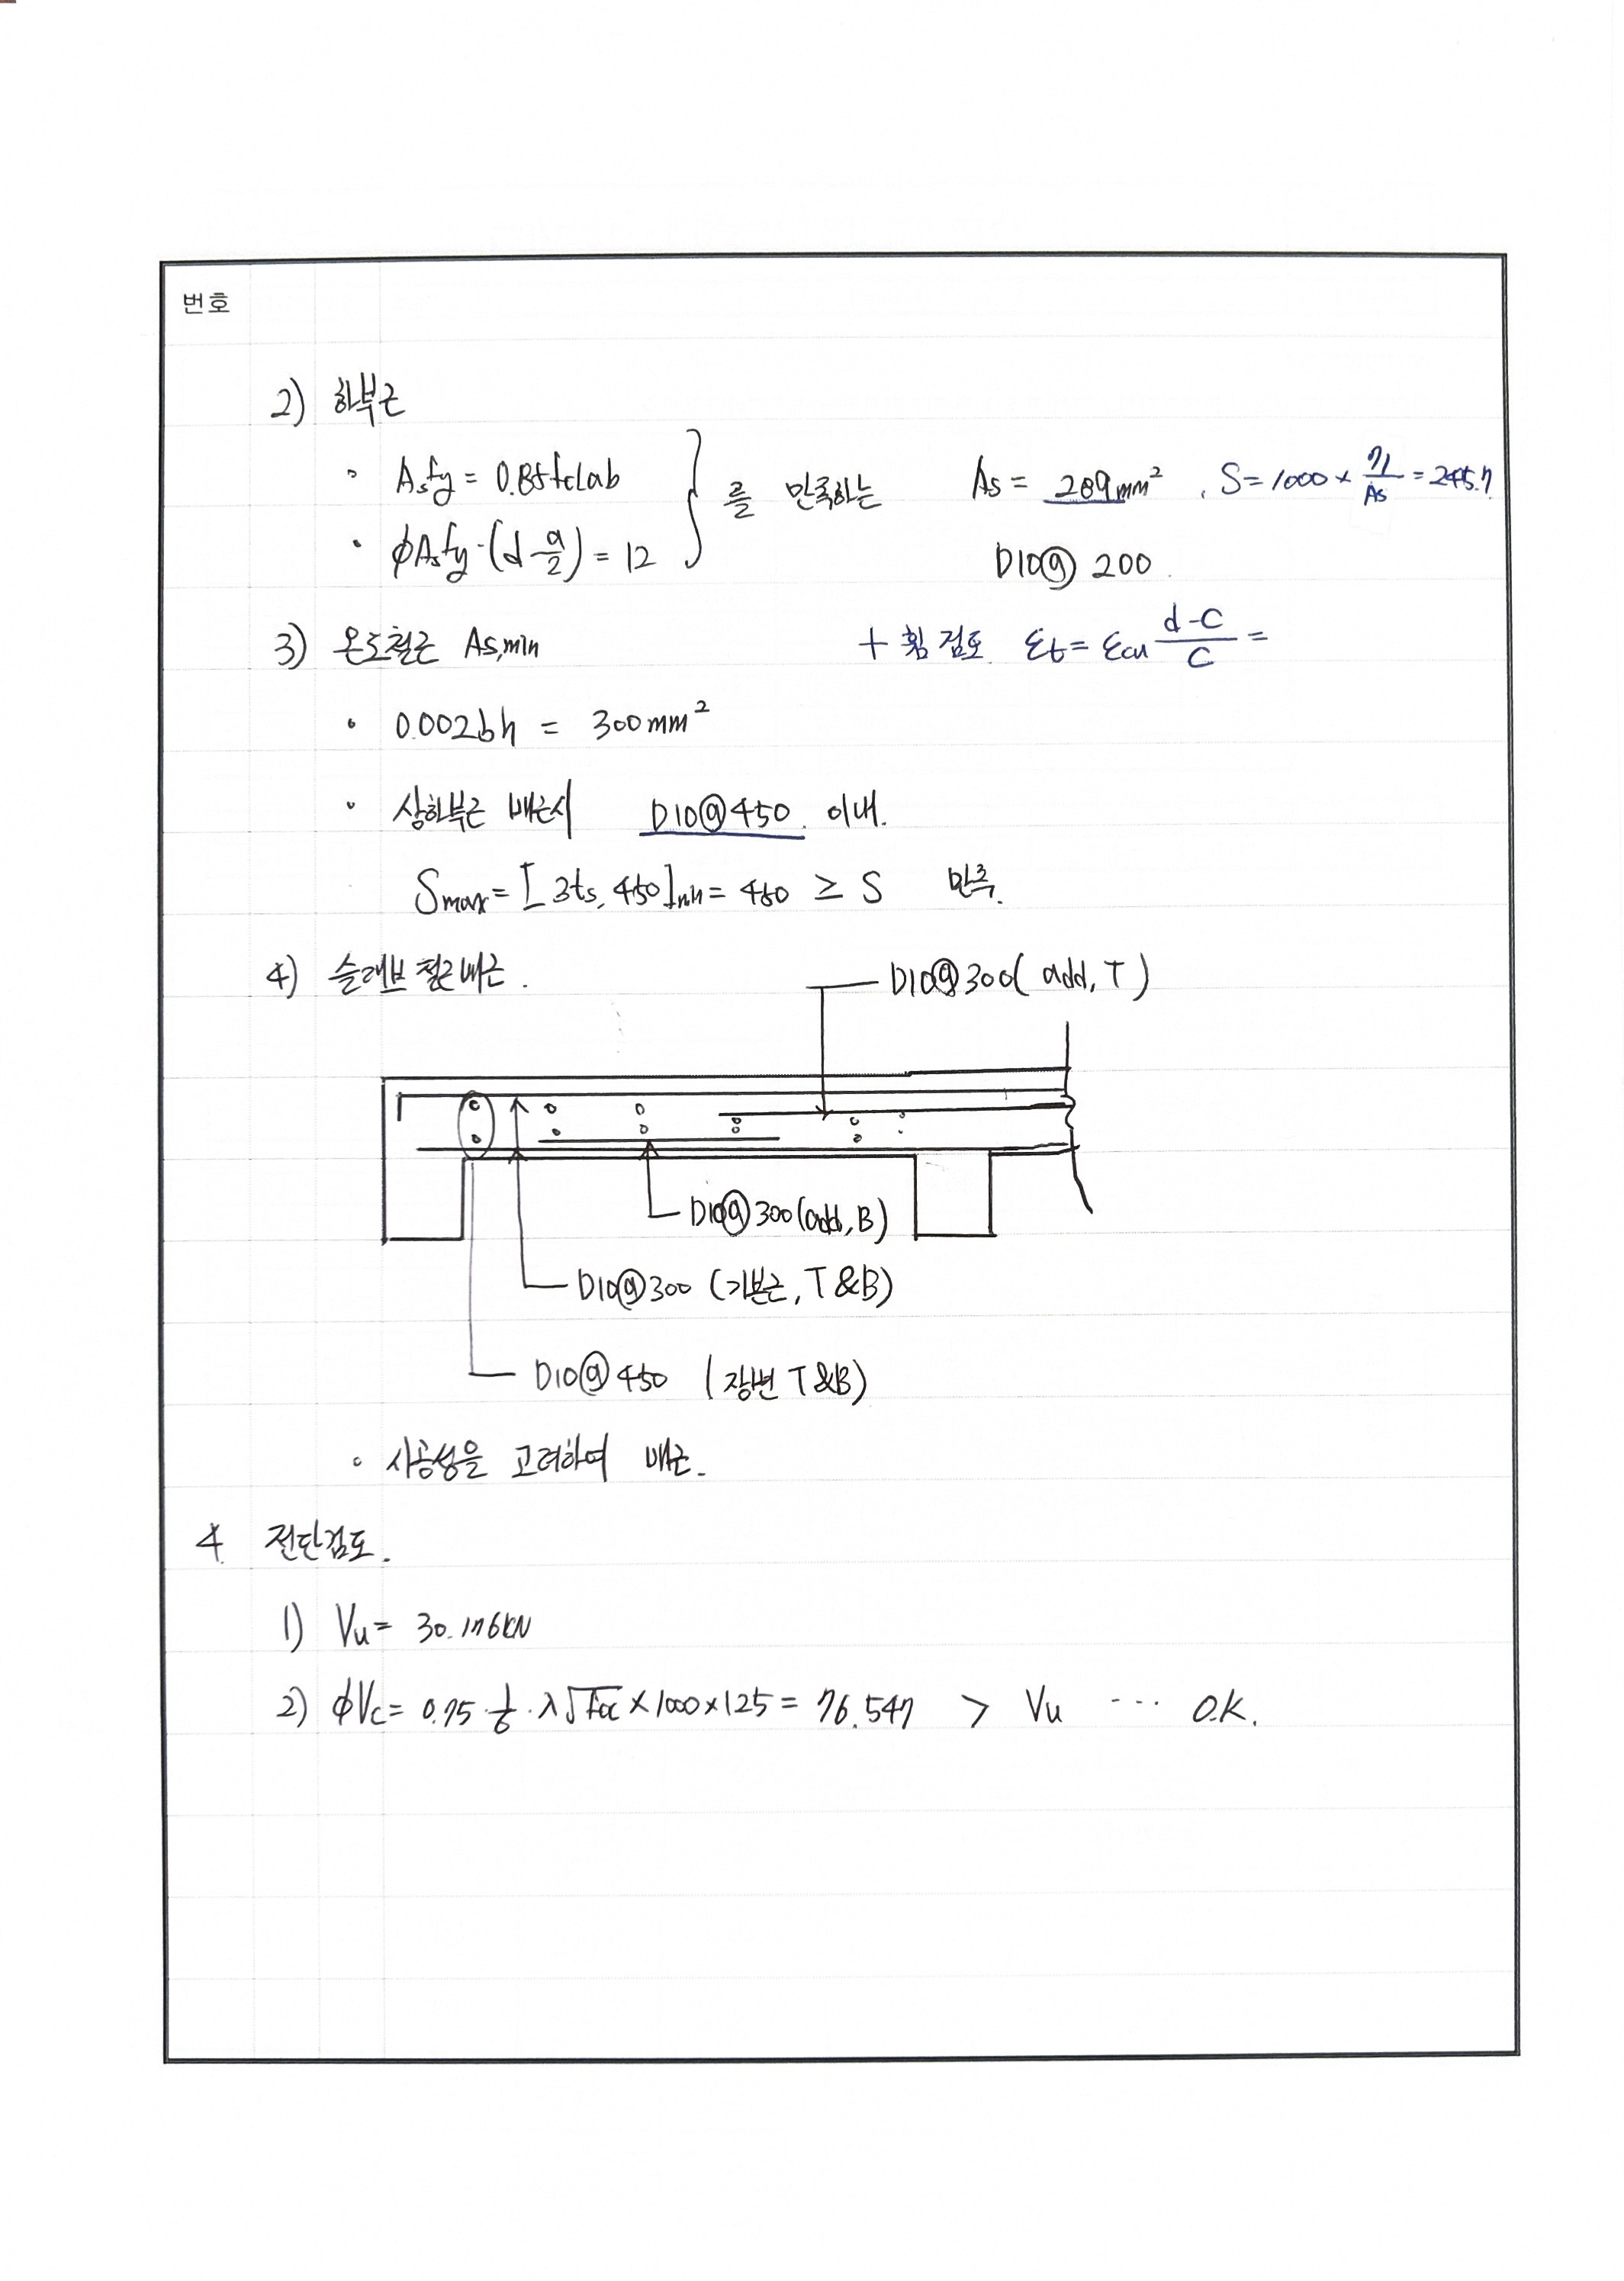 번호
2) 하부근
• Asfy = 0.85fckab
• φAsfy·(d-a/2) = 12 } 를 만족하는 As = 289mm² , S = 1000 × 71/As = 245.7
D10@ 200
3) 온도철근 As,min + 휨 검토 εt = εcu (d-c)/c =
• 0.002bh = 300mm²
• 상하부근 배근시 D10@450. 이내.
Smax = [3ts, 450]min = 450 ≥ S 만족.
4) 슬래브 철근배근.
D10@300( add, T )
D10@300(add, B)
D10@300 (기본근, T&B)
D10@ 450 (장변 T&B)
• 시공성을 고려하여 배근.
4. 전단검토.
1) Vu = 30.176kN
2) φVc = 0.75·1/6·λ√fck × 1000 × 125 = 76.547 > Vu ... O.K.